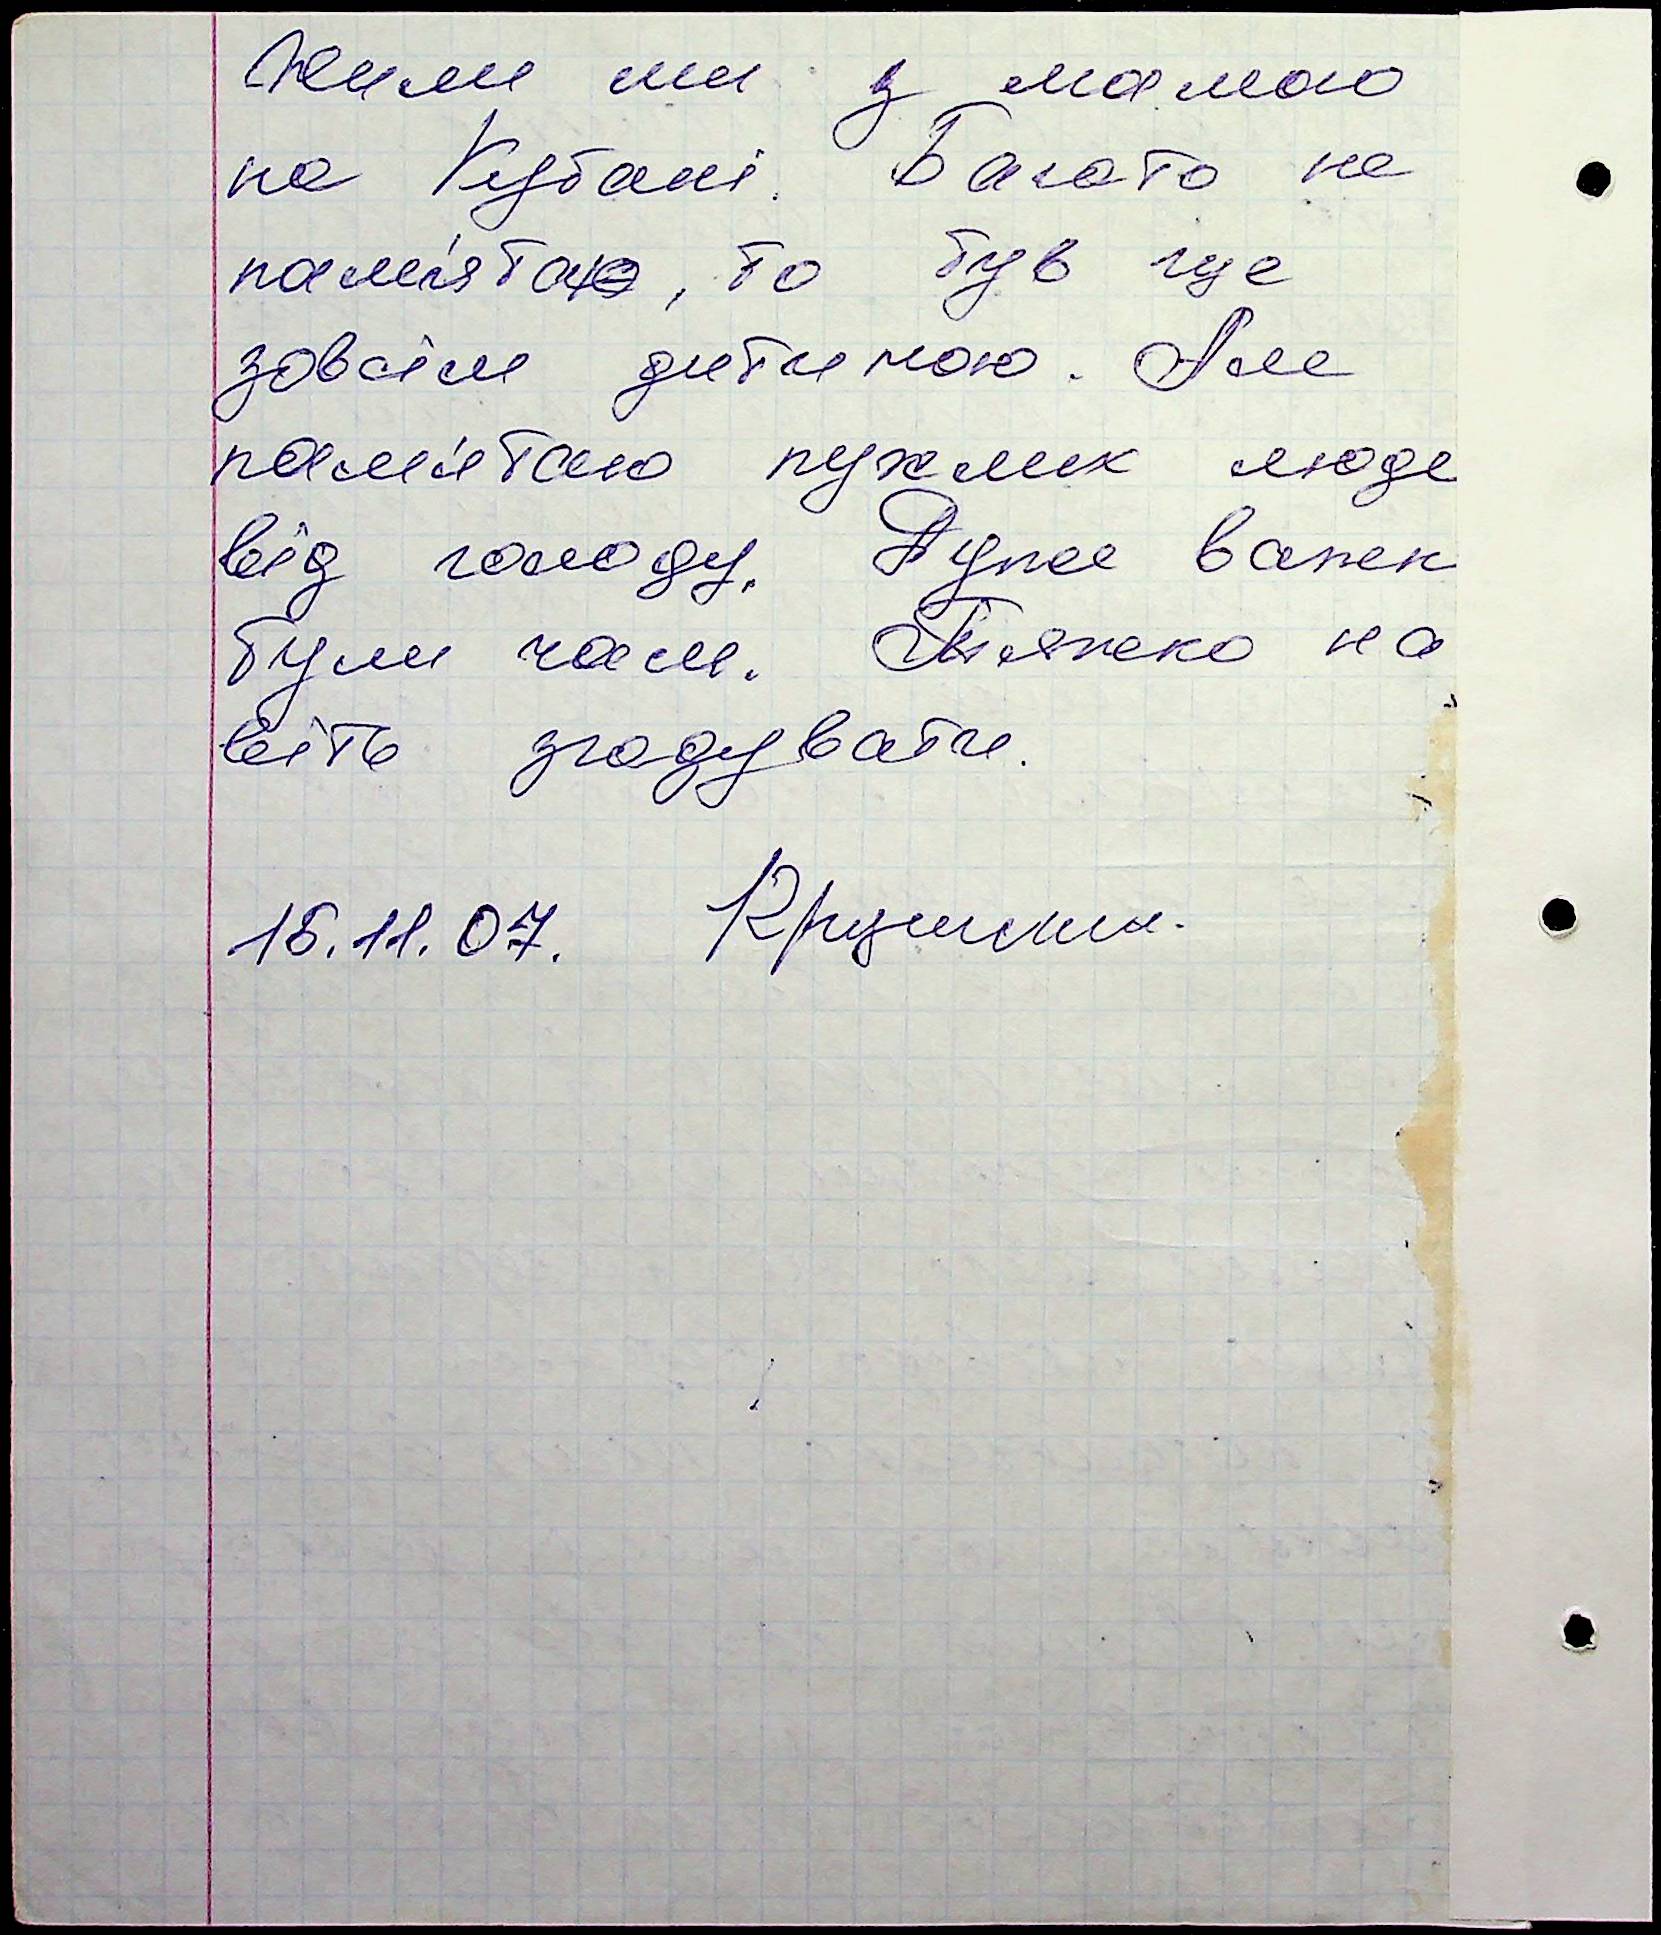 Жили ми з мамою
на Кубані. Багато не
пам'ятаю, бо був ще
зовсім дитиною. Але
пам'ятаю пухлих люде
від голоду. Дуже важк
були часи. Тяжко на
віть згадувати.
15.11.07.